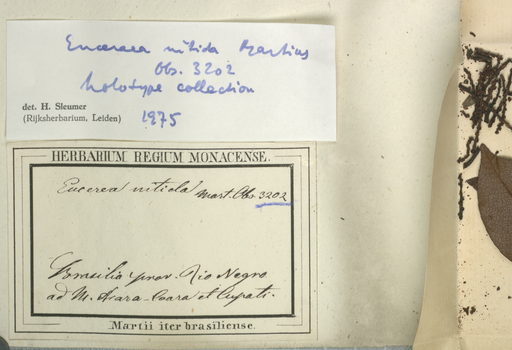 Euceraea nitida Martius
Obs. 3202
holotype collection
det. H. Sleumer
(Rijksherbarium, Leiden)
1975
HERBARIUM REGIUM MONACENSE.
Eucerea nitida Mart. Obs. 3202
Brasilia prov. Rio Negro
ad M. Arara-Coara et Cupati.
Martii iter brasiliense.